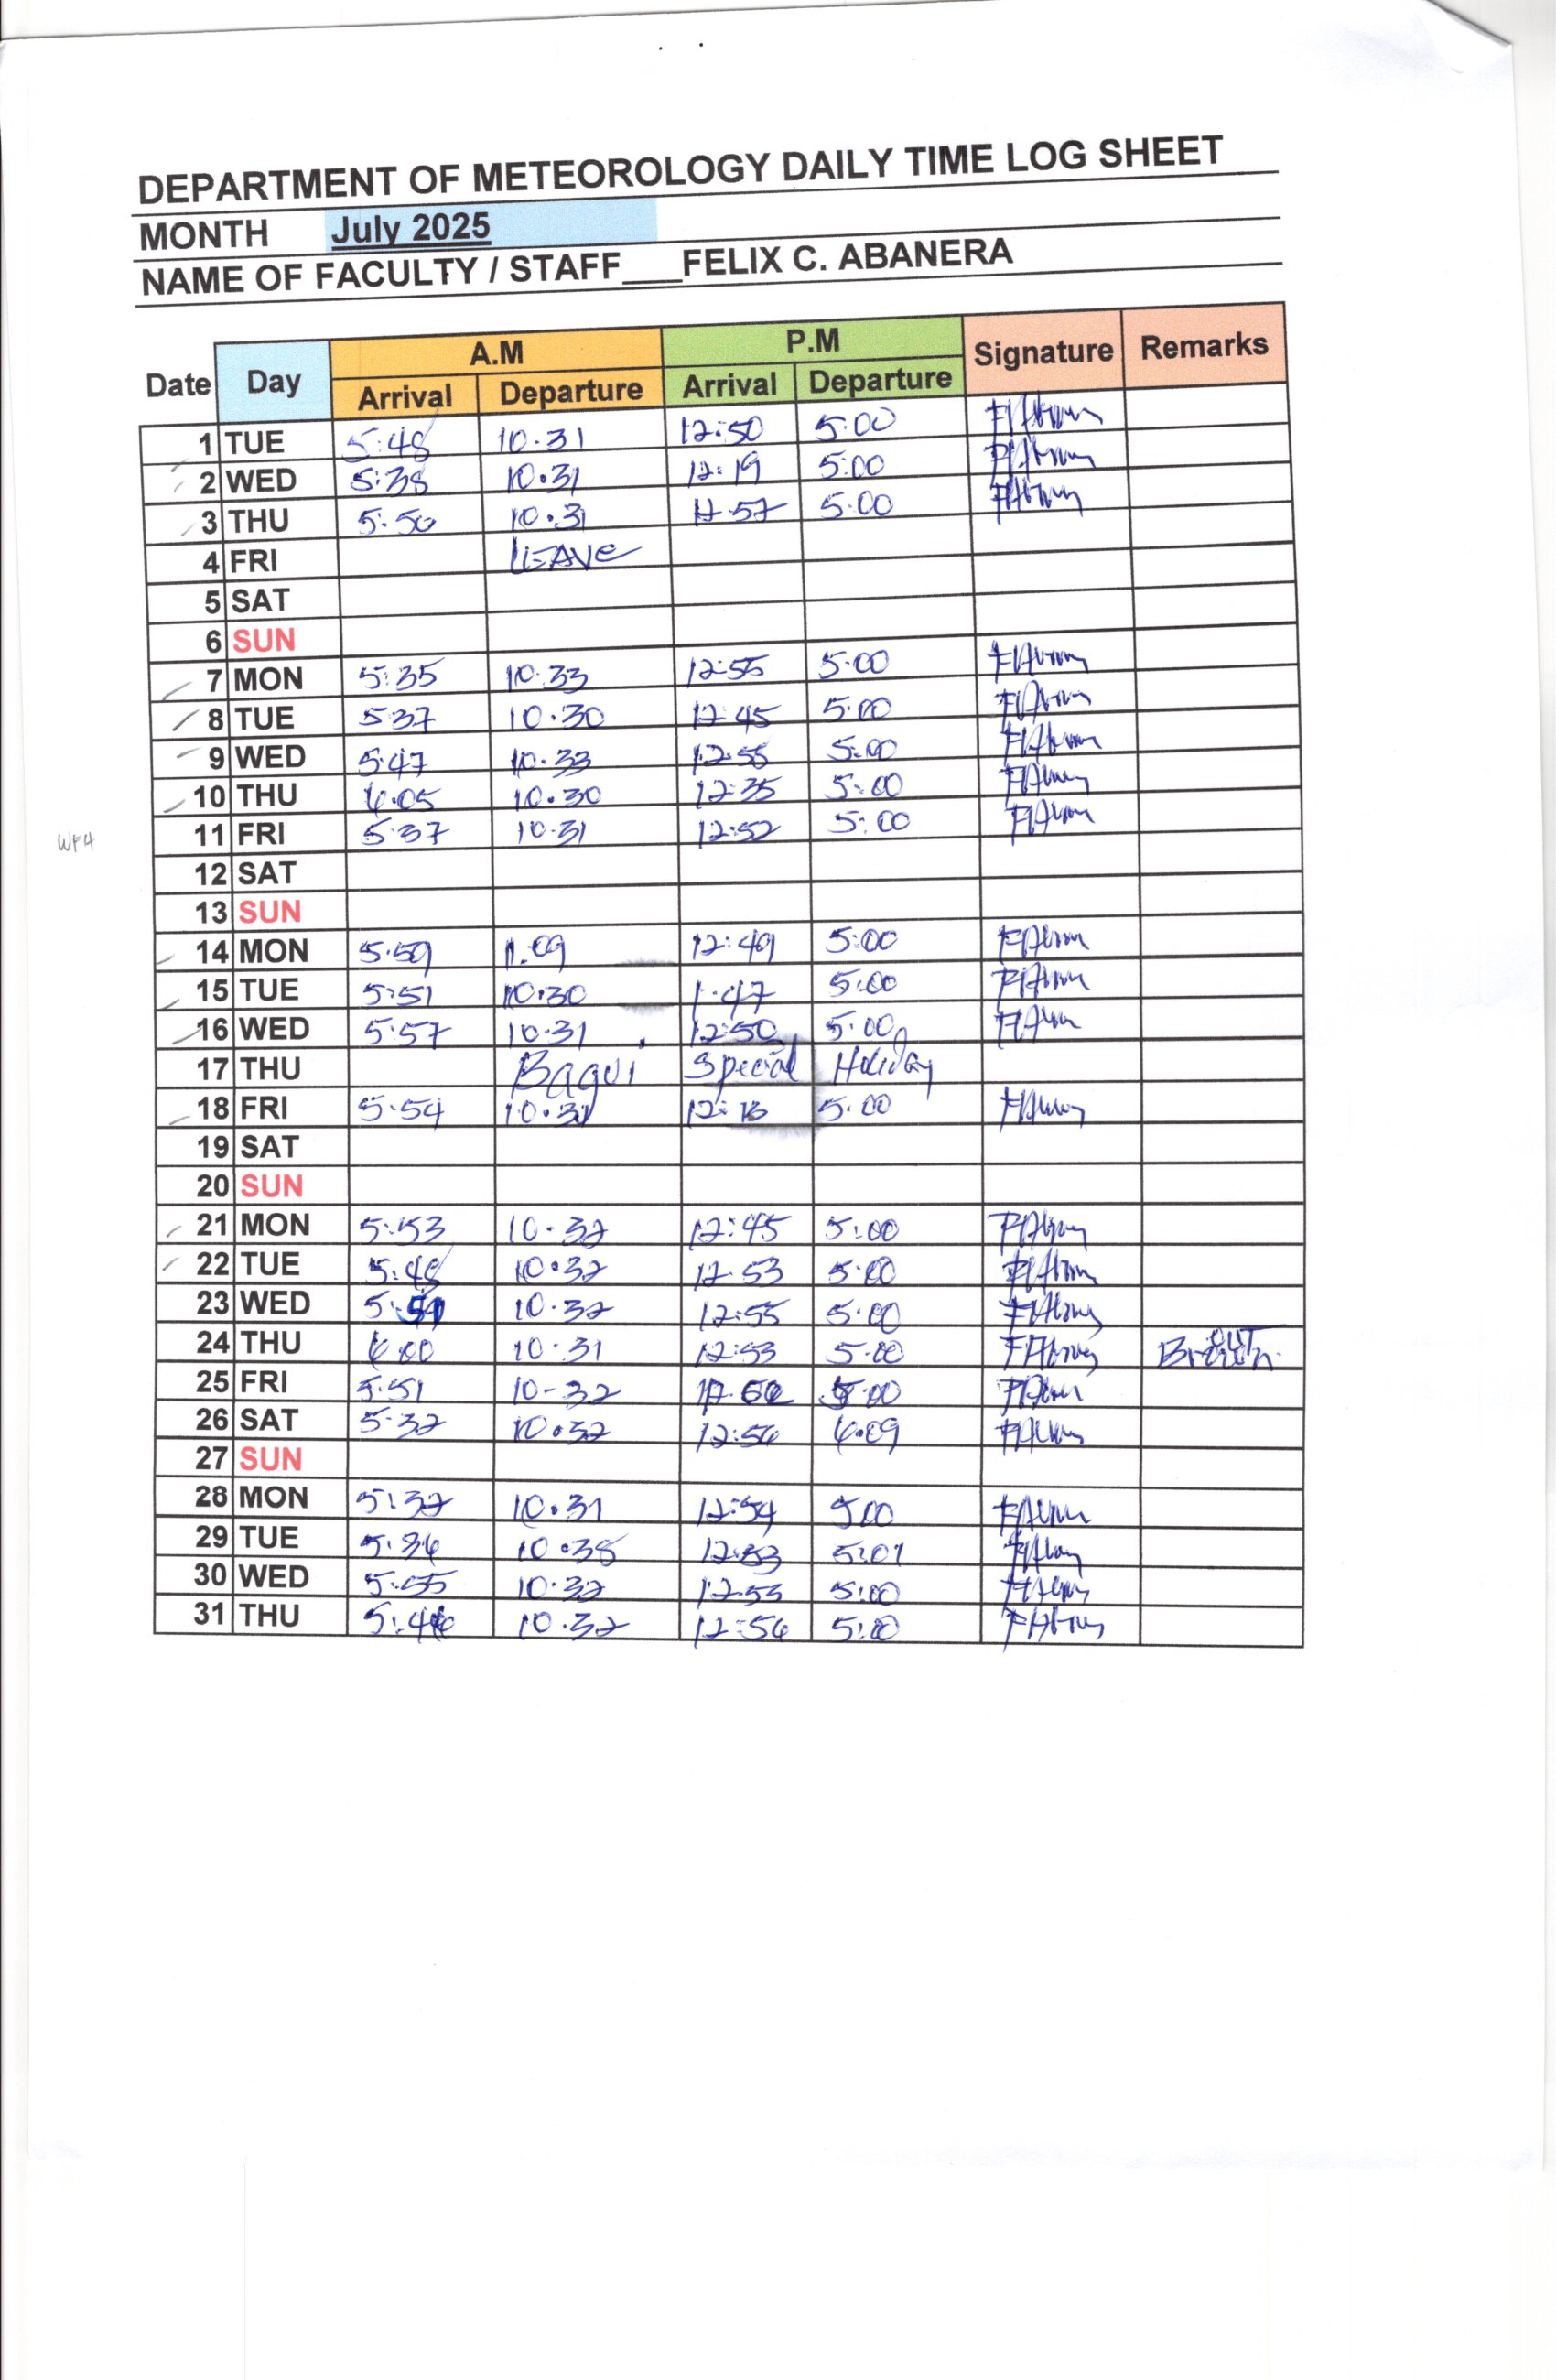 DEPARTMENT OF METEOROLOGY DAILY TIME LOG SHEET
MONTH July 2025
NAME OF FACULTY / STAFF___FELIX C. ABANERA
Date Day A.M P.M Signature Remarks
Arrival Departure Arrival Departure
1 TUE 5:48 10.31 12:50 5:00
2 WED 5:38 10.31 12:19 5:00
3 THU 5:50 10.31 5:00
4 FRI LEAVE
5 SAT
6 SUN
7 MON 5:35 10.33 12:55 5:00
8 TUE 5:37 10.30 12:45 5:00
9 WED 5:47 10.33 12:55 5:00
10 THU 6:05 10.30 12:35 5:00
11 FRI 5:37 10.31 12:52 5:00
WF4
12 SAT
13 SUN
14 MON 5:59 1.09 12:49 5:00
15 TUE 5:51 10:30 1:47 5:00
16 WED 5:57 10:31 12:50 5:00
17 THU Special Holiday
18 FRI 5:54 12:13 5:00
19 SAT
20 SUN
21 MON 5:53 10.32 12:45 5:00
22 TUE 5:48 10.32 12:53 5:00
23 WED 10.32 12:55 5:00
24 THU 6:00 10.31 12:53 5:00
25 FRI 5:51 10-32 5:00
26 SAT 5:32 10.32 12:56 4:09
27 SUN
28 MON 5:32 10.31 12:54 5:00
29 TUE 5:36 10:38 12:53 5:01
30 WED 5:55 10.32 12:53 5:00
31 THU 10.32 12:56 5:00